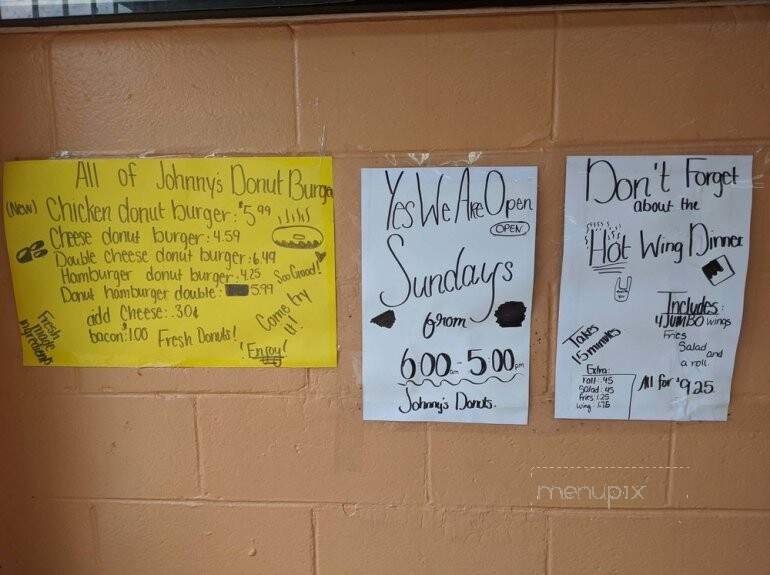 All of Johnny's Donut Burger
(New) Chicken donut burger: $5.99
Cheese donut burger: 4.59
Double cheese donut burger: 6.49
Hamburger donut burger: 4.25
Donut hamburger double: 5.99
add Cheese: .30¢
bacon: $1.00
Fresh Donuts!
Soo Good!
Come try it!
Fresh made ingredients
! Enjoy!
Yes We Are Open
OPEN
Sundays
from
6:00am - 5:00pm
Johnny's Donuts.
Don't Forget
about the
Hot Wing Dinner
Includes:
4 JUMBO wings
Fries
Salad
and
a roll
Takes
15 minutes
Extra:
roll: .45
Salad: .45
fries: 1.25
wing: 1.75
All for $9.25
menupix